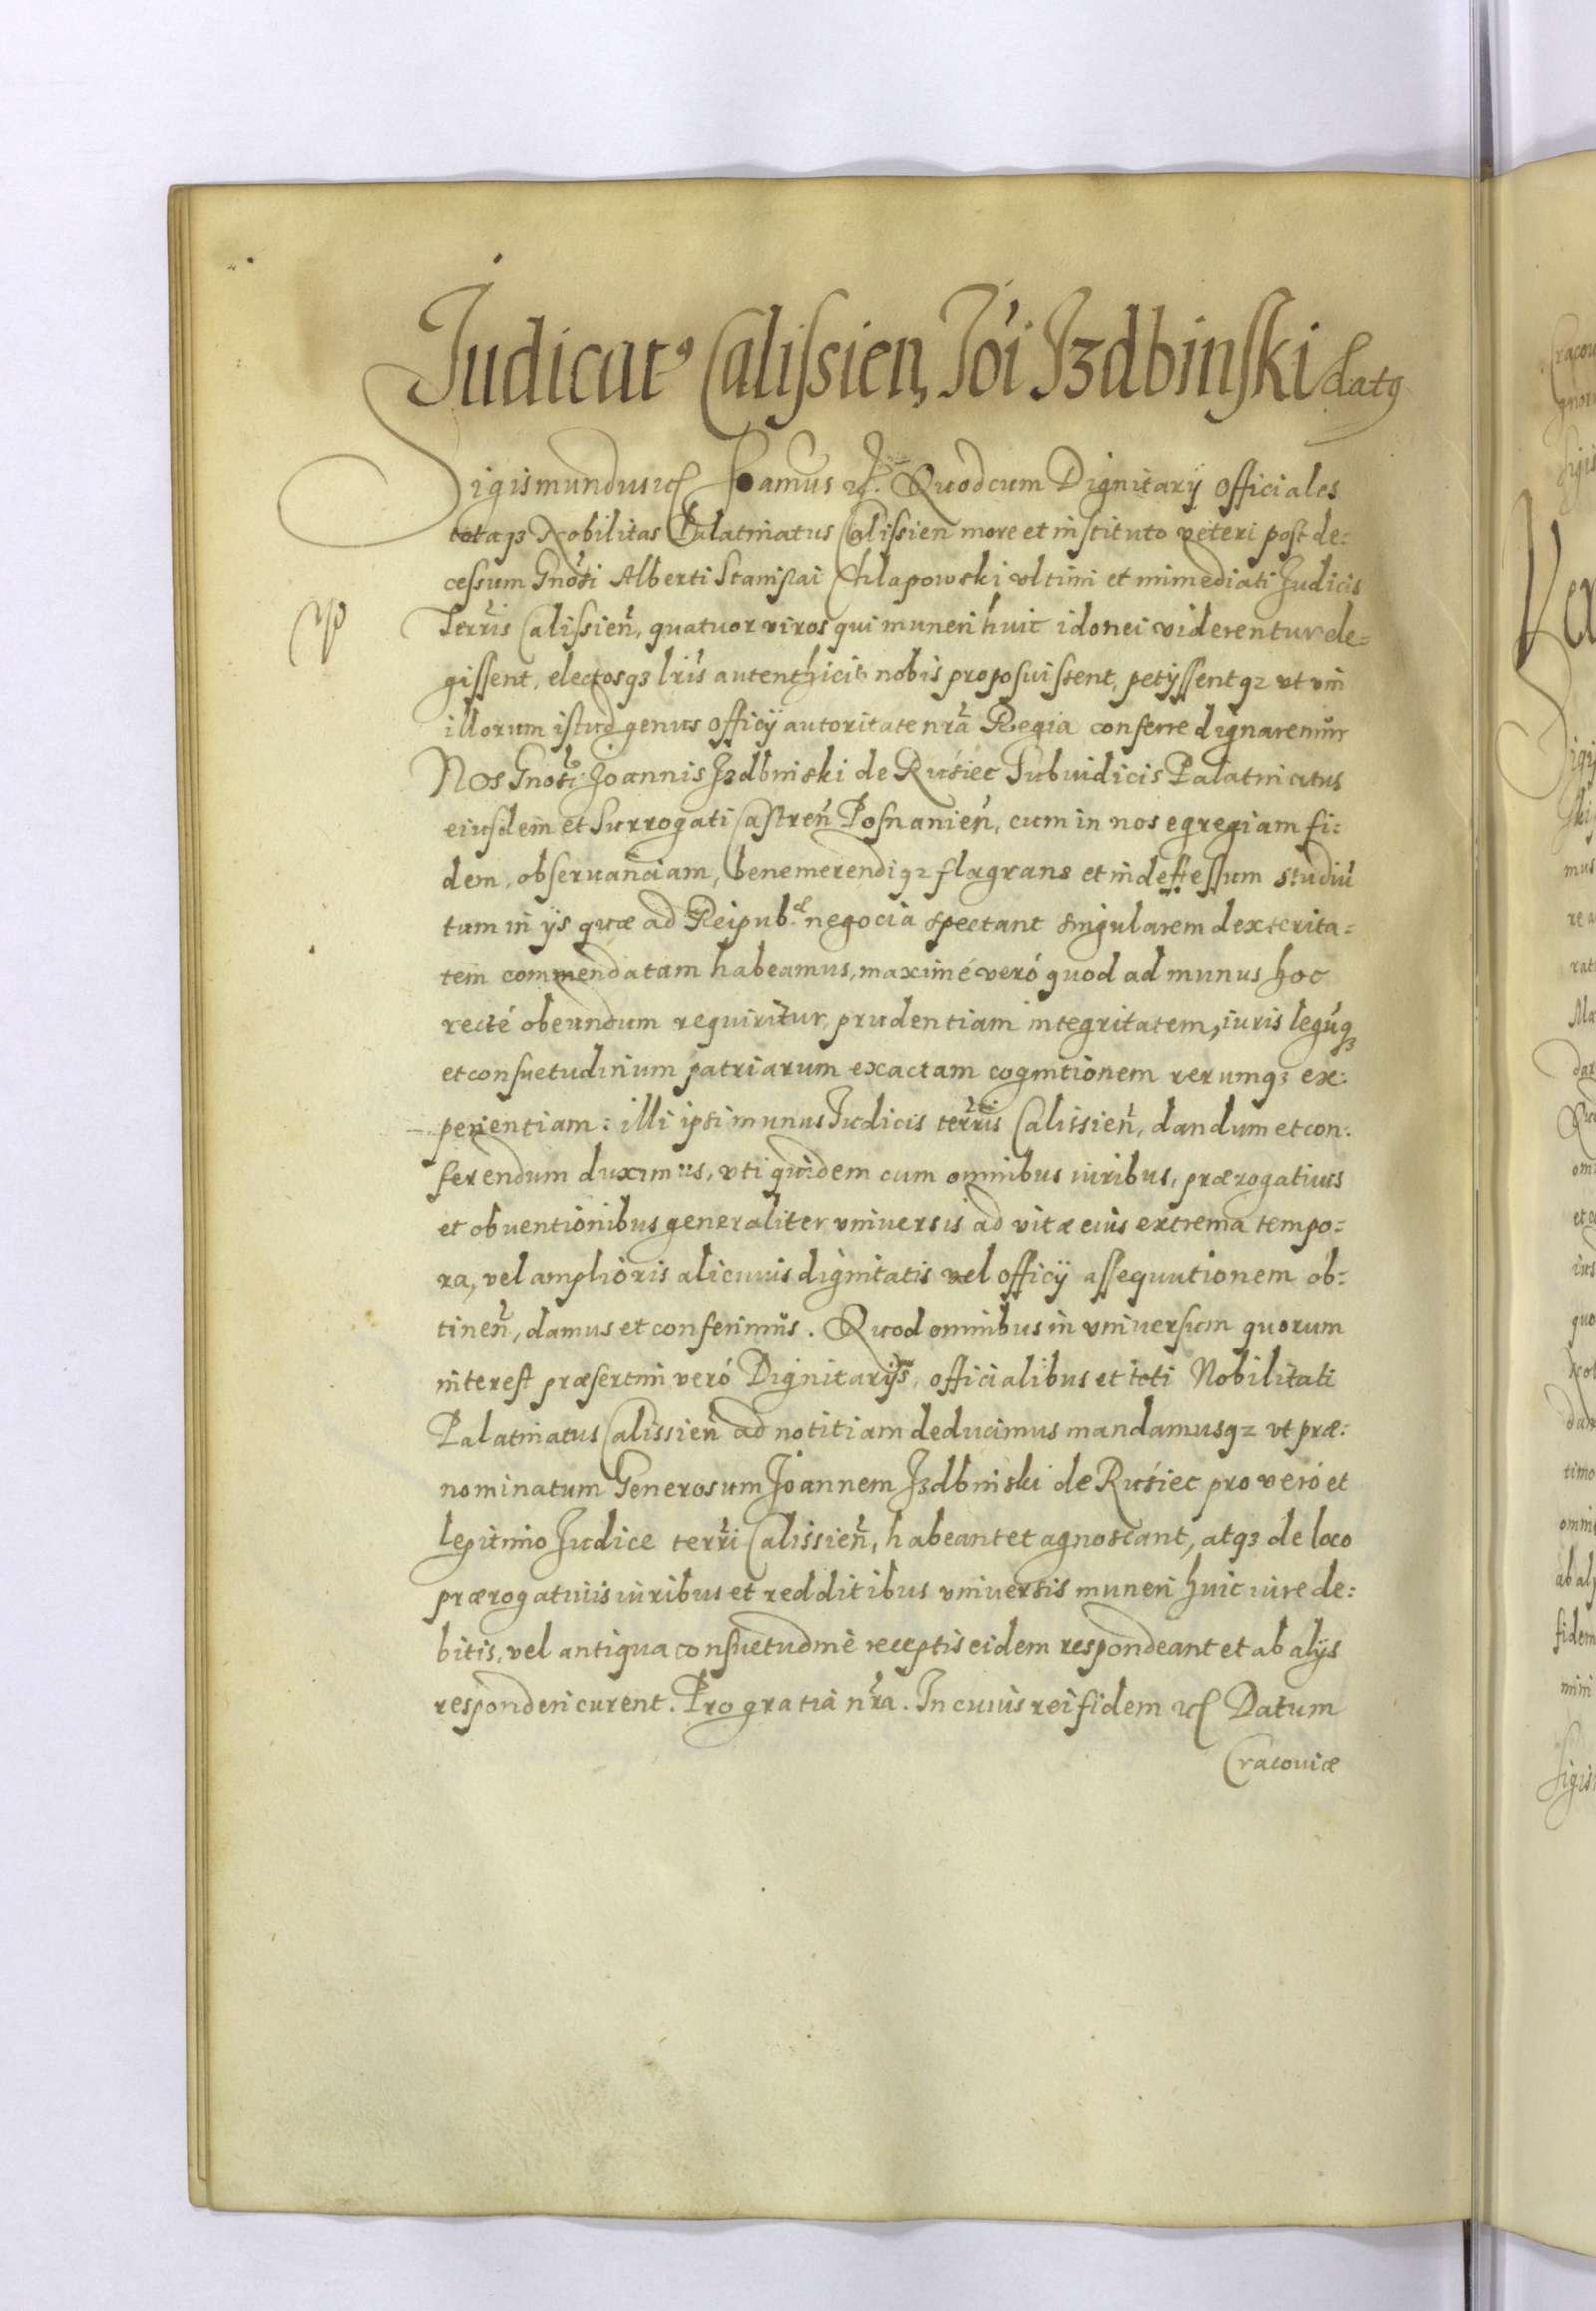 Judicatꝰ Calissien, Joi Jzdbinski datꝰ
Sigismundus etc. Quod cum Dignitarij officiales
totaqȝ Nobilitas Palatinatus Calissien more et instituto veteri post de:
cessum Gnosi Alberti Stanislai Chlapowski vltimi et immediati Judicis
Terris Calissien̄, quatuor viros qui muneri huic idonei viderentur ele=
gissent, electosqȝ lris autenthicis nobis proposuissent, petyssentqȝ vt vni
illorum istud genus officij autoritate nrã Regia conferre dignaremur
Nos Gnosi Joannis Jzdbinski de Rusiec Subiudicis Palatinatus
eiusdem et Surrogati Castren̄ Posnanien̄, cum in nos egregiam fi:
dem, obseruanciam, benemerendiqȝ flagrans et indeffessum studiũ
tum in ijs quæ ad Reipub. negocia spectant singularem dexterita=
tem commendatam habeamus, maximé veró quod ad munus hoc
recté obeundum requiritur, prudentiam integritatem, iuris legũqȝ
et consuetudinum patriarum exactam cognitionem rerumqȝ ex:
perientiam: illi ipsi munus Judicis terris Calissien̄, dandum et con:
ferendum duximus, vti quidem cum omnibus iuribus, prærogatiuis
et obuentionibus generaliter vniuersis ad vitæ eius extrema tempo=
ra, vel amplioris alicuius dignitatis vel officij assequutionem ob:
tinen̄, damus et conferimus. Quod omnibus in vniuersum quorum
interest præsertim veró Dignitarijs, officialibus et toti Nobilitati
Palatinatus Calissien̄ ad notitiam deducimus mandamusqȝ vt præ:
nominatum Generosum Joannem Jzdbinski de Rusiec pro veró et
legitimo Judice terri Calissien̄, habeant et agnoscant, atqȝ de loco
prærogatiuis iuribus et redditibus vniuersis muneri huic iure de:
bitis, vel antiqua consuetudine receptis eidem respondeant et ab alijs
responderi curent. Pro gratia nrã. In cuius rei fidem etc Datum
Cracouiæ